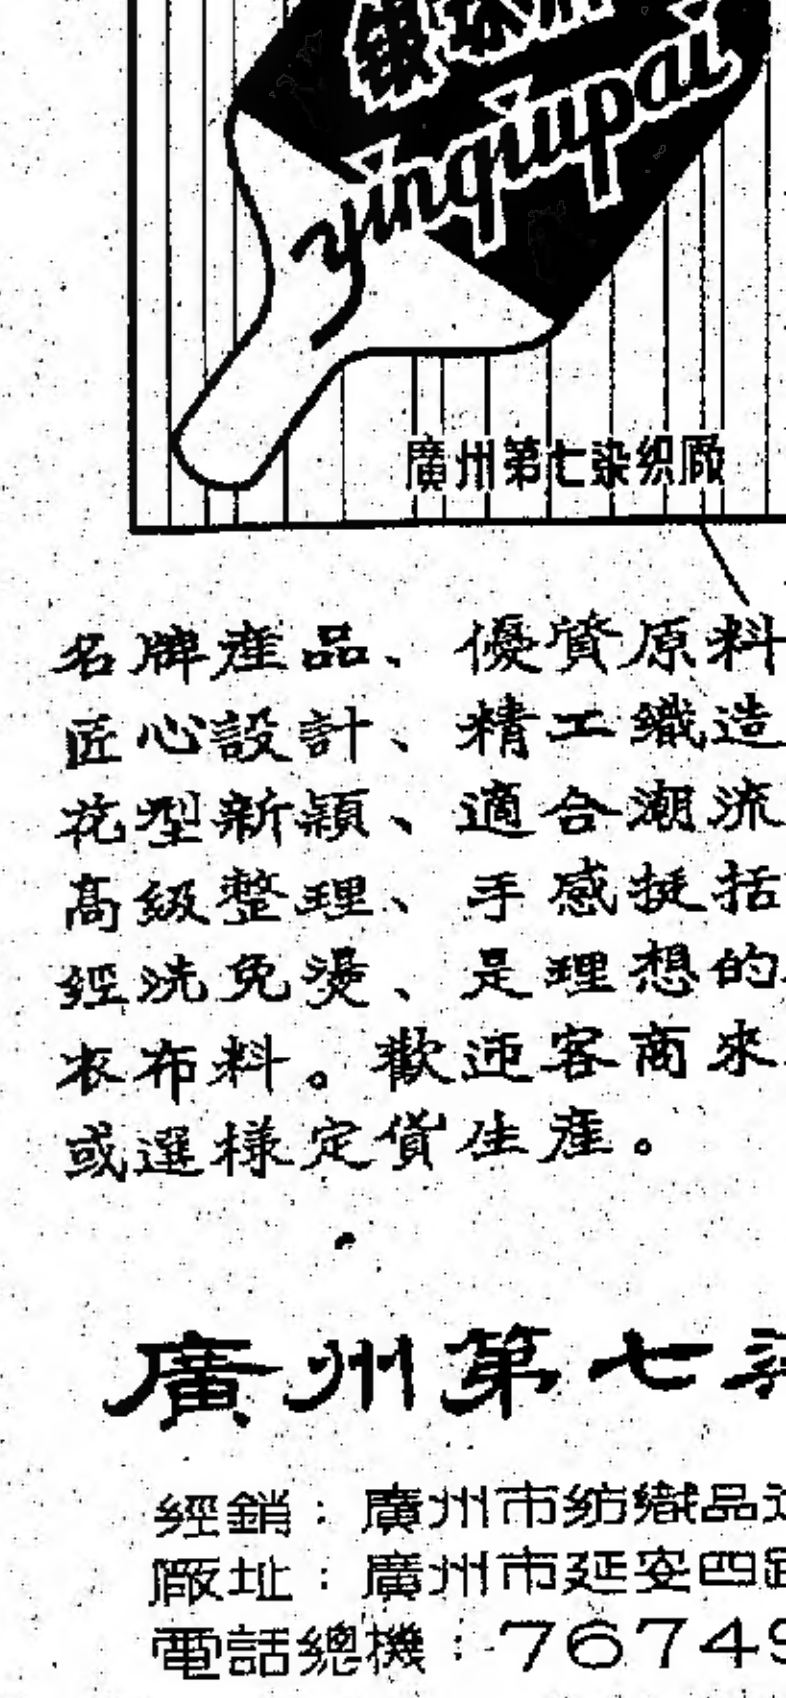 銀球牌
yinqiupai
廣州第七染织厰
名牌產品、優質原料
匠心設計、精工織造
花型新穎、適合潮流
高級整理、手感挺括
經洗免燙、是理想的
衣布料。歡迎客商來
或選樣定貨生產。
廣州第七染
經銷：廣州市紡織品
厰址：廣州市延安四路
電話總機：76749